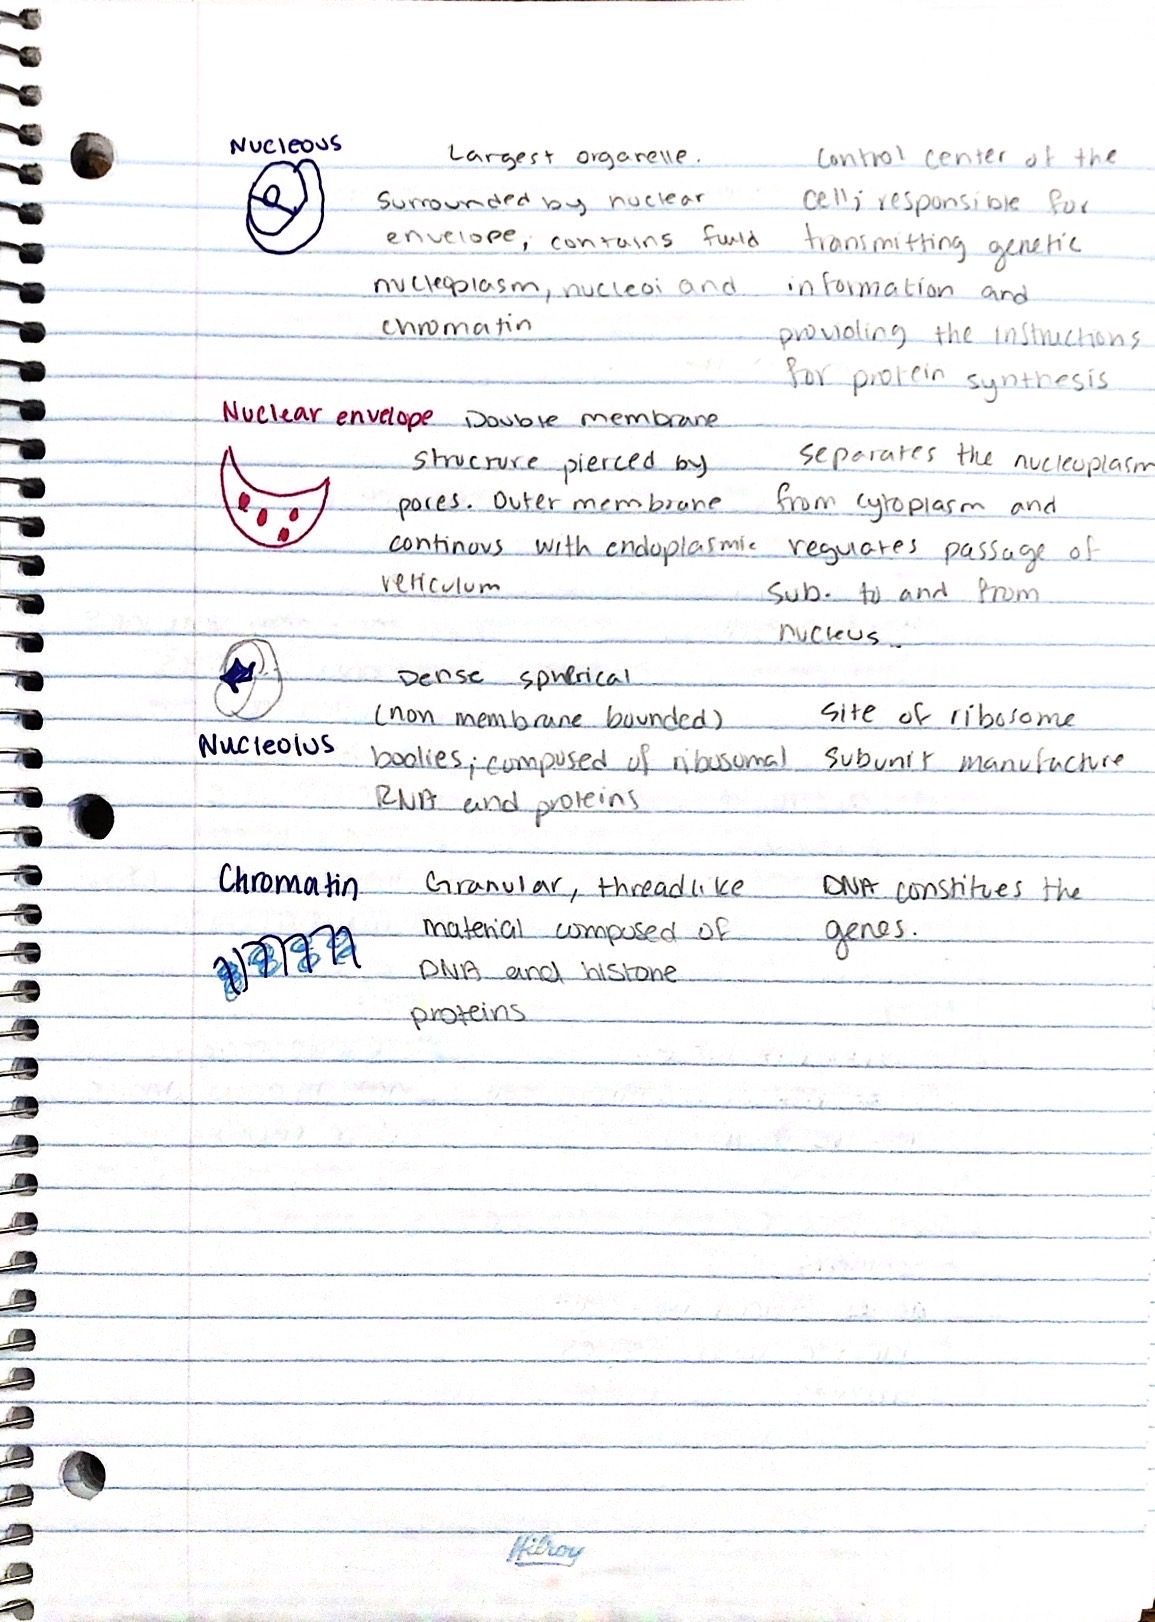 Nucleous
Largest organelle.
surrounded by nuclear
envelope; contains fuild
nucleoplasm, nucleoi and
chromatin
control center of the
cell; responsible for
transmitting genetic
information and
providing the instructions
for protein synthesis
Nuclear envelope
Double membrane
structure pierced by
pores. Outer membrane
continous with endoplasmic
reticulum
Separates the nucleoplasm
from cytoplasm and
regulates passage of
sub. to and from
nucleus.
Nucleolus
Dense spherical
(non membrane bounded)
bodies; composed of ribosomal
RNA and proteins
Site of ribosome
subunit manufacture
Chromatin
Granular, threadlike
material composed of
DNA and histone
proteins
DNA constitues the
genes.
Hilroy